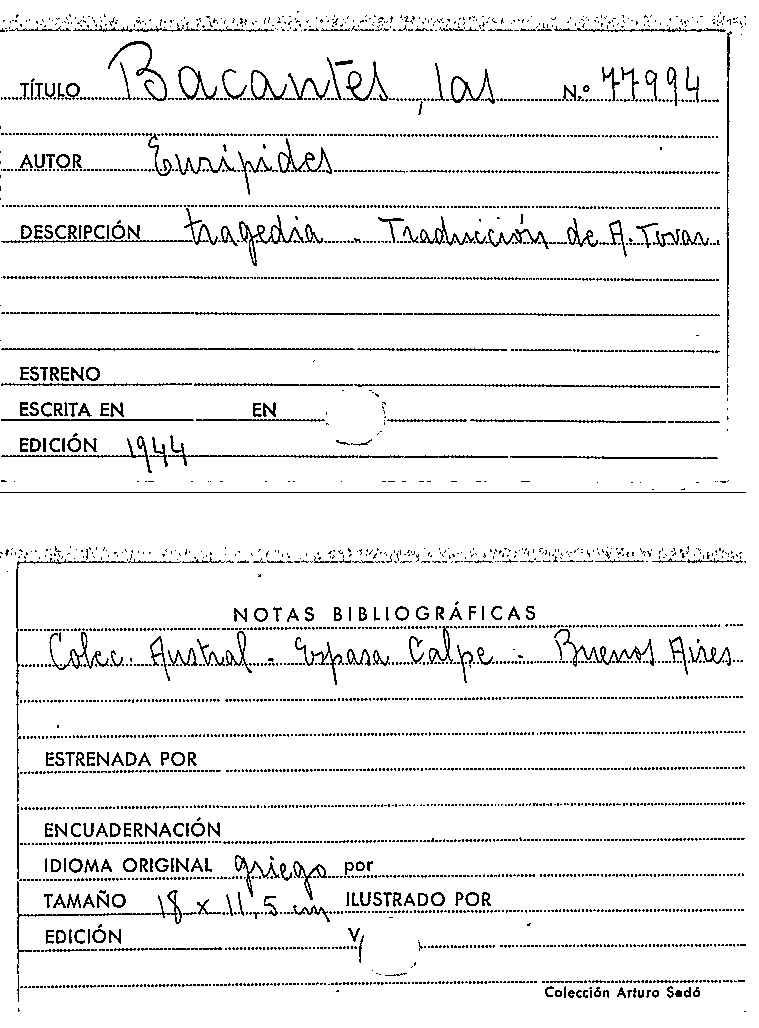 TÍTULO Bacantes, las N.º 77994
AUTOR Eurípides
DESCRIPCIÓN tragedia - Traducción de A. Tovar
ESTRENO
ESCRITA EN EN
EDICIÓN 1944
NOTAS BIBLIOGRÁFICAS
Colec. Austral - Espasa Calpe - Buenos Aires
ESTRENADA POR
ENCUADERNACIÓN
IDIOMA ORIGINAL griego por
TAMAÑO 18 x 11,5 cm ILUSTRADO POR
EDICIÓN
Colección Arturo Sedó